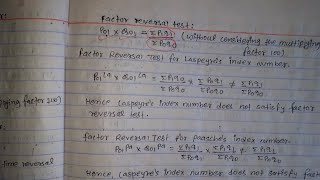 Factor reversal test:
P01 x Q01 = ΣP1q1 / ΣP0q0 (without considering the multiplying factor 100)
Factor Reversal Test for Laspeyre's index number.
P01^La x Q01^La = ΣP1q0 / ΣP0q0 x ΣP0q1 / ΣP0q0 ≠ ΣP1q1 / ΣP0q0
plying factor 100)
Hence Laspeyre's index number does not satisfy factor
reversal test.
Factor Reversal Test for Paasche's index number.
P01^Pa x Q01^Pa = ΣP1q1 / ΣP0q1 x ΣP1q1 / ΣP1q0 ≠ ΣP1q1 / ΣP0q0
time reversal
Hence, Laspeyre's Index number does not satisfy fact